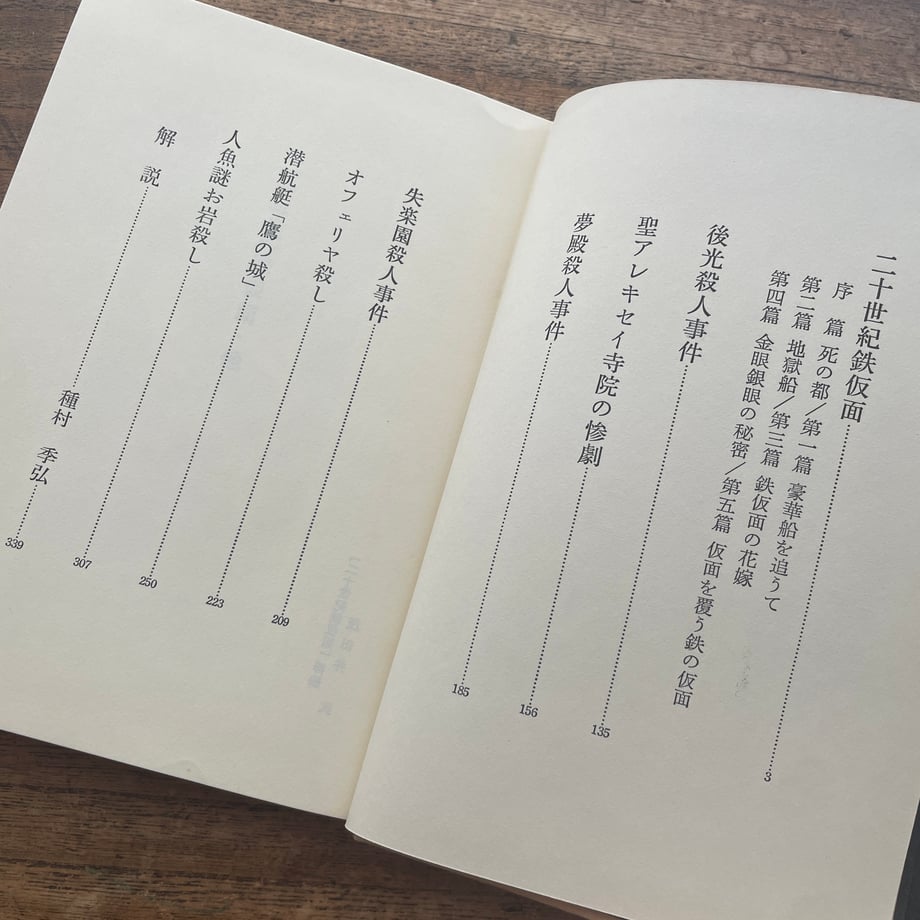 二十世紀鉄仮面 3
序　篇　死の都／第一篇　豪華船を追うて
第二篇　地獄船／第三篇　鉄仮面の花嫁
第四篇　金眼銀眼の秘密／第五篇　仮面を覆う鉄の仮面
後光殺人事件 135
聖アレキセイ寺院の惨劇 156
夢殿殺人事件 185
失楽園殺人事件 209
オフェリヤ殺し 223
潜航艇「鷹の城」 250
人魚謎お岩殺し 307
解　説 種村　季弘 339